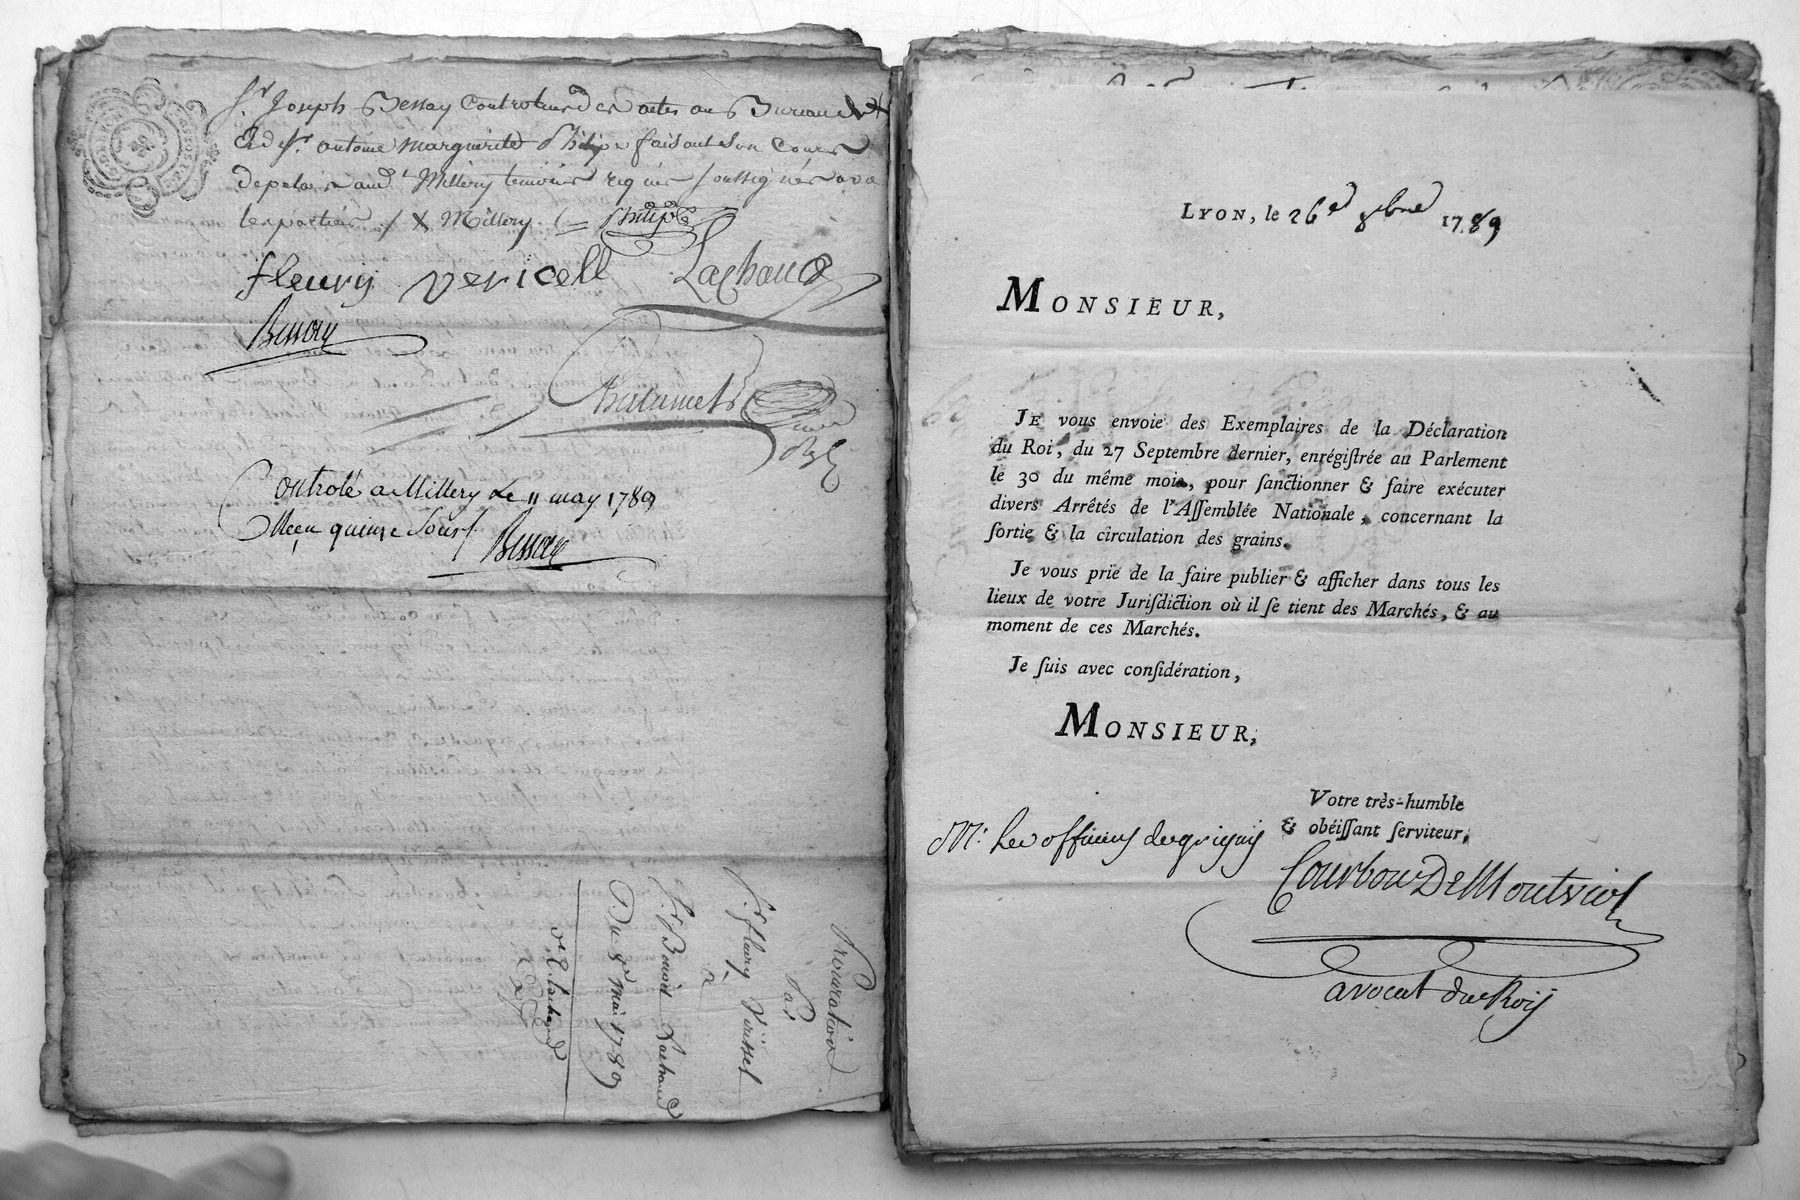 Sr. Joseph Bessay Controleur des actes au Bureau
Et de Sr. antoine marguerite Philipe faisant son Cours
de palais aud. Millery temoins requis soussignés avec
les parties / X Millery. Philipe
fleury vericell Lachaud
Bessay
Controlé a Millery Le 11 may 1789
Reçu quinze Sous Bessay
Procuration
Par
Sr. fleury Vérissel
à
Sr. Benoit Lachaud
Du 8e. Mai 1789
LYON, le 26e 8bre 1789
MONSIEUR,
JE vous envoie des Exemplaires de la Déclaration
du Roi, du 27 Septembre dernier, enrégiſtrée au Parlement
le 30 du même mois, pour ſanctionner & faire exécuter
divers Arrêtés de l'Aſſemblée Nationale, concernant la
ſortie & la circulation des grains.
Je vous prie de la faire publier & afficher dans tous les
lieux de votre Juriſdiction où il ſe tient des Marchés, & au
moment de ces Marchés.
Je ſuis avec conſidération,
MONSIEUR,
Votre très-humble
& obéiſſant ſerviteur,
Mrs. Les officiers de grigny
Courbon De Montviol
avocat du Roy